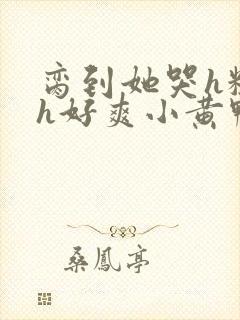 脔到她哭h粗
h好爽小黄鸭
桑鳳亭